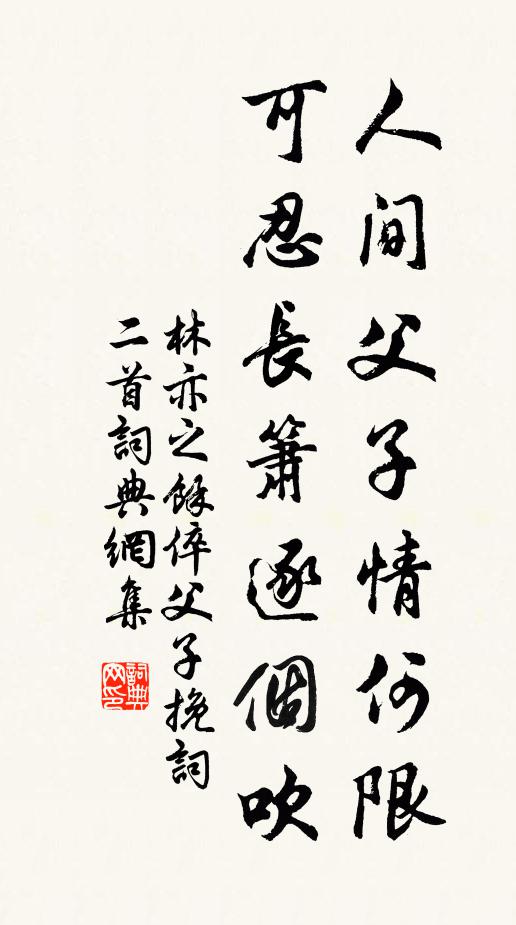 人間父子情何限
可忍長簫逐個吹
林亦之餘倅父子挽詞
二首詞典網集
詞典網印